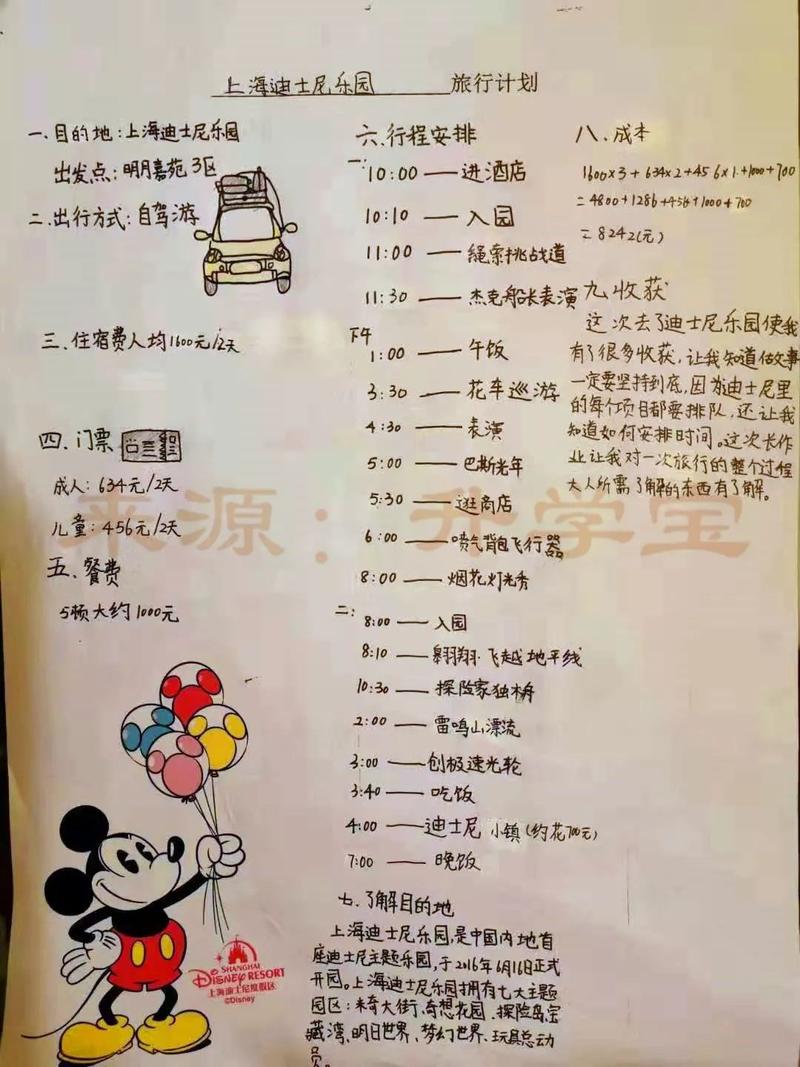 上海迪士尼乐园 旅行计划
一、目的地：上海迪士尼乐园
出发点：明月嘉苑3区
二、出行方式：自驾游
三、住宿费人均1600元/2天
四、门票
成人：634元/2天
儿童：456元/2天
五、餐费
5顿大约1000元
六、行程安排
一：
10:00——进酒店
10:10——入园
11:00——绳索挑战道
11:30——杰克船长表演
下午
1:00——午饭
3:30——花车巡游
4:30——表演
5:00——巴斯光年
5:30——逛商店
6:00——喷气背包飞行器
8:00——烟花灯光秀
二：
8:00——入园
8:10——翱翔·飞越地平线
10:30——探险家独木舟
2:00——雷鸣山漂流
3:00——创极速光轮
3:40——吃饭
4:00——迪士尼小镇(约花700元)
7:00——晚饭
七、了解目的地
上海迪士尼乐园,是中国内地首
座迪士尼主题乐园,于2016年6月16日正式
开园。上海迪士尼乐园拥有七大主题
园区：米奇大街、奇想花园、探险岛、宝
藏湾、明日世界、梦幻世界、玩具总动
员。
八、成本
1600×3+634×2+456×1+1000+700
=4800+1286+456+1000+700
=8242(元)
九、收获
这次去了迪士尼乐园使我
有了很多收获,让我知道做故事
一定要坚持到底,因为迪士尼里
的每个项目都要排队,还让我
知道如何安排时间。这次长作
业让我对一次旅行的整个过程
大人所需了解的东西有了解。
来源：升学宝
SHANGHAI
Disney RESORT
上海迪士尼度假区
©Disney